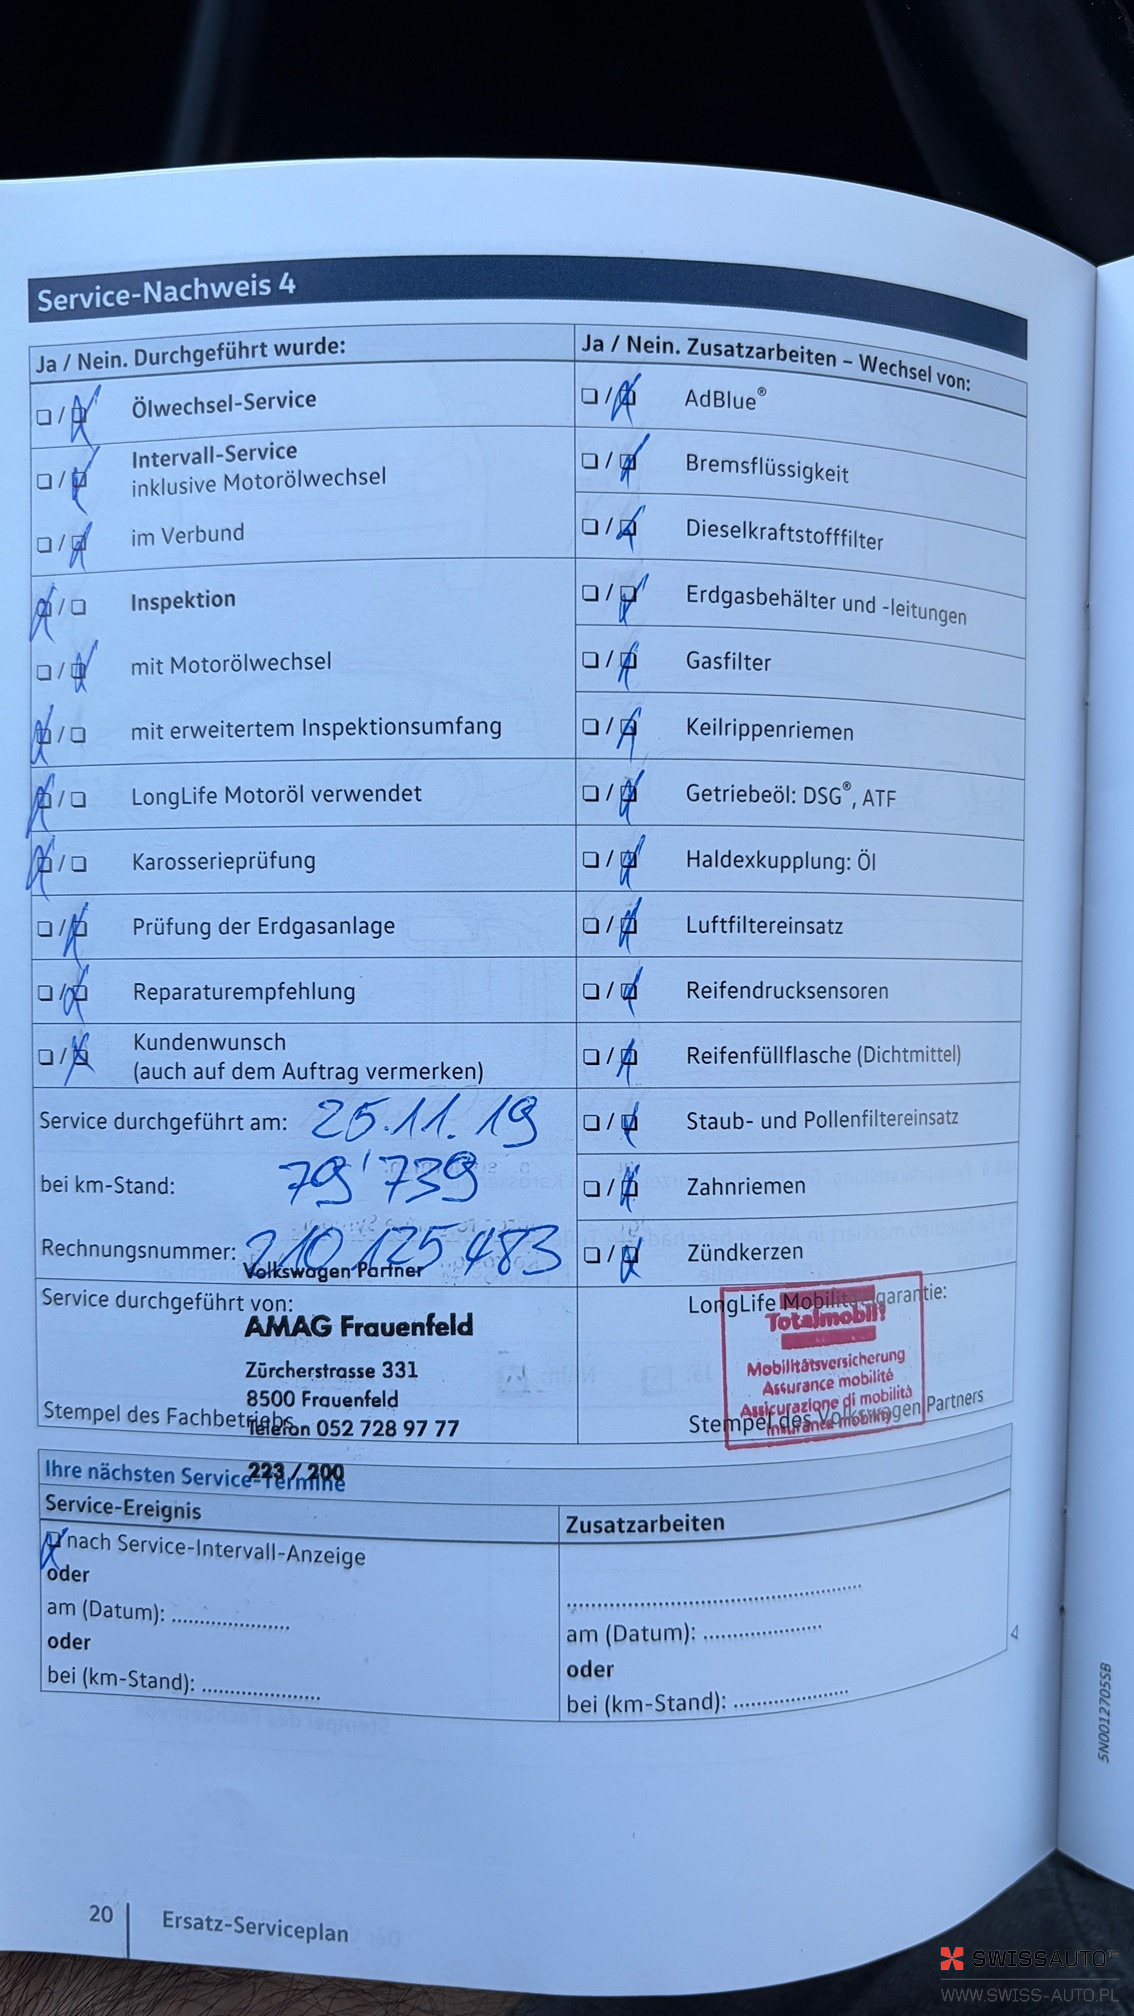 Service-Nachweis 4
Ja / Nein. Durchgeführt wurde:
Ölwechsel-Service
Intervall-Service
inklusive Motorölwechsel
im Verbund
Inspektion
mit Motorölwechsel
mit erweitertem Inspektionsumfang
LongLife Motoröl verwendet
Karosserieprüfung
Prüfung der Erdgasanlage
Reparaturempfehlung
Kundenwunsch
(auch auf dem Auftrag vermerken)
Service durchgeführt am: 25.11.19
bei km-Stand: 79'739
Rechnungsnummer: 210 125 483
Ja / Nein. Zusatzarbeiten – Wechsel von:
AdBlue®
Bremsflüssigkeit
Dieselkraftstofffilter
Erdgasbehälter und -leitungen
Gasfilter
Keilrippenriemen
Getriebeöl: DSG®, ATF
Haldexkupplung: Öl
Luftfiltereinsatz
Reifendrucksensoren
Reifenfüllflasche (Dichtmittel)
Staub- und Pollenfiltereinsatz
Zahnriemen
Zündkerzen
Volkswagen Partner
Service durchgeführt von:
AMAG Frauenfeld
Zürcherstrasse 331
8500 Frauenfeld
Stempel des Fachbetriebs
Telefon 052 728 97 77
223 / 200
LongLife Mobilitätsgarantie:
Totalmobil!
Mobilitätsversicherung
Assurance mobilité
Assicurazione di mobilità
Insurance mobility
Stempel des Volkswagen Partners
Ihre nächsten Service-Termine
Service-Ereignis
nach Service-Intervall-Anzeige
oder
am (Datum): ....................
oder
bei (km-Stand): ....................
Zusatzarbeiten
am (Datum): ....................
oder
bei (km-Stand): ....................
4
5N0012705SB
20
Ersatz-Serviceplan
SWISSAUTO™
WWW.SWISS-AUTO.PL